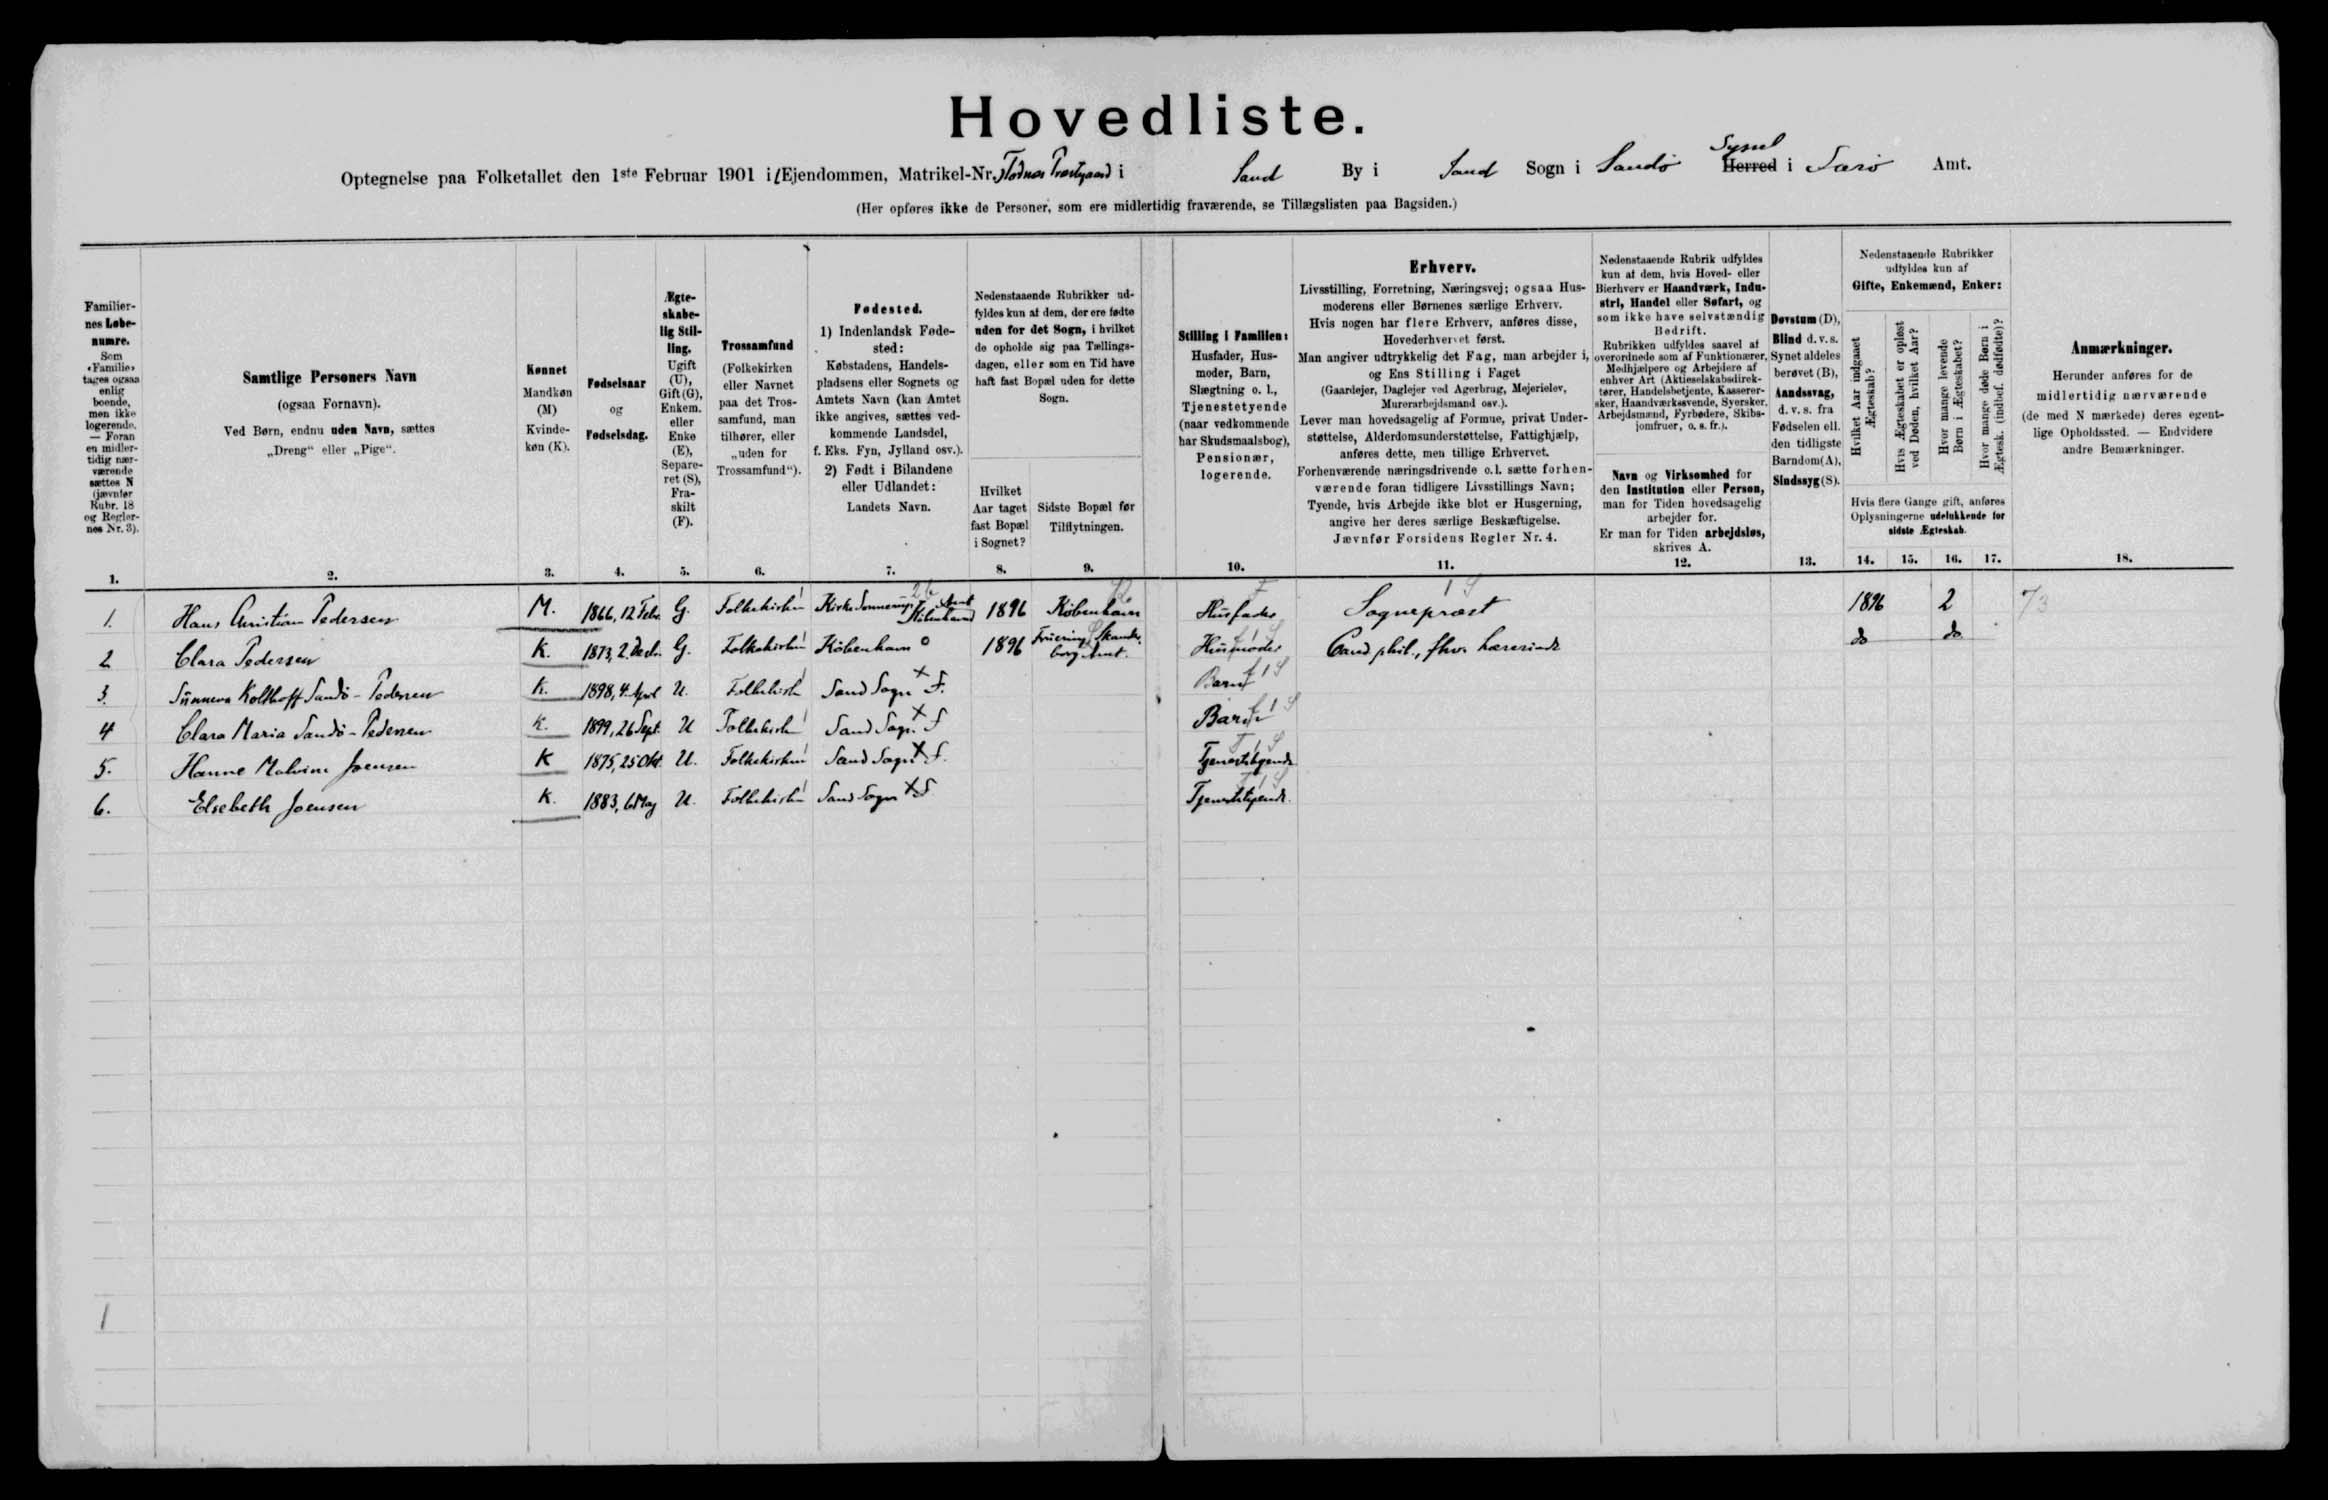 Hovedliste.
Optegnelse paa Folketallet den 1ste Februar 1901 i Ejendommen, Matrikel-Nr. Todnæs Præstgaard i Sand By i Sand Sogn i Sandø Syssel Herred i Færø Amt.
(Her opføres ikke de Personer, som ere midlertidig fraværende, se Tillægslisten paa Bagsiden.)
Familiernes Løbenumre.
Som «Familie» tages ogsaa enlig boende, men ikke logerende. — Foran en midlertidig nærværende sættes N (jævnfør Rubr. 18 og Reglernes Nr. 3).
Samtlige Personers Navn
(ogsaa Fornavn).
Ved Børn, endnu uden Navn, sættes
„Dreng“ eller „Pige“.
Kønnet
Mandkøn (M)
Kvindekøn (K).
Fødselsaar
og
Fødselsdag.
Ægteskabelig Stilling.
Ugift (U), Gift (G), Enkem. eller Enke (E), Separeret (S), Fraskilt (F).
Trossamfund
(Folkekirken eller Navnet paa det Trossamfund, man tilhører, eller „uden for Trossamfund“).
Fødested.
1) Indenlandsk Fødested:
Købstadens, Handelspladsens eller Sognets og Amtets Navn (kan Amtet ikke angives, sættes vedkommende Landsdel, f. Eks. Fyn, Jylland osv.).
2) Født i Bilandene eller Udlandet:
Landets Navn.
Nedenstaaende Rubrikker udfyldes kun af dem, der ere fødte uden for det Sogn, i hvilket de opholde sig paa Tællingsdagen, eller som en Tid have haft fast Bopæl uden for dette Sogn.
Hvilket Aar taget fast Bopæl i Sognet?
Sidste Bopæl før Tilflytningen.
Stilling i Familien:
Husfader, Husmoder, Barn, Slægtning o. l., Tjenestetyende (naar vedkommende har Skudsmaalsbog), Pensionær, logerende.
Erhverv.
Livsstilling, Forretning, Næringsvej; ogsaa Husmoderens eller Børnenes særlige Erhverv.
Hvis nogen har flere Erhverv, anføres disse, Hovederhvervet først.
Man angiver udtrykkelig det Fag, man arbejder i, og Ens Stilling i Faget
(Gaardejer, Daglejer ved Agerbrug, Mejerielev, Murerarbejdsmand osv.).
Lever man hovedsagelig af Formue, privat Understøttelse, Alderdomsunderstøttelse, Fattighjælp, anføres dette, men tillige Erhvervet.
Forhenværende næringsdrivende o.l. sætte forhenværende foran tidligere Livsstillings Navn;
Tyende, hvis Arbejde ikke blot er Husgerning, angive her deres særlige Beskæftigelse.
Jævnfør Forsidens Regler Nr. 4.
Nedenstaaende Rubrik udfyldes kun af dem, hvis Hoved- eller Bierhverv er Haandværk, Industri, Handel eller Søfart, og som ikke have selvstændig Bedrift.
Rubrikken udfyldes saavel af overordnede som af Funktionærer, Medhjælpere og Arbejdere af enhver Art (Aktieselskabsdirektører, Handelsbetjente, Kasserersker, Haandværkssvende, Syersker, Arbejdsmænd, Fyrbødere, Skibsjomfruer, o. s. fr.).
Navn og Virksomhed for den Institution eller Person, man for Tiden hovedsagelig arbejder for.
Er man for Tiden arbejdsløs, skrives A.
Døvstum (D), Blind d. v. s. Synet aldeles berøvet (B), Aandssvag, d. v. s. fra Fødselen ell. den tidligste Barndom (A), Sindssyg (S).
Nedenstaaende Rubrikker udfyldes kun af
Gifte, Enkemænd, Enker:
Hvilket Aar indgaaet Ægteskab?
Hvis Ægteskabet er opløst ved Døden, hvilket Aar?
Hvor mange levende Børn i Ægteskabet?
Hvor mange døde Børn i Ægtesk. (indbef. dødfødte)?
Hvis flere Gange gift, anføres Oplysningerne udelukkende for sidste Ægteskab.
Anmærkninger.
Herunder anføres for de midlertidig nærværende (de med N mærkede) deres egentlige Opholdssted. — Endvidere andre Bemærkninger.
1. 2. 3. 4. 5. 6. 7. 8. 9. 10. 11. 12. 13. 14. 15. 16. 17. 18.
1. Hans Christian Pedersen M. 1866, 12 Febr. G. Folkekirken Kirke Sonnerup, Københavns Amt 1896 København Husfader Sognepræst 1896 2 73
2 Clara Pedersen K. 1873, 2. Decbr. G. Folkekirken København 1896 Fruering, Skanderborg Amt. Husmoder Cand. phil., fhv. Lærerinde do do
3. Sunneva Kolthoff Sandö-Pedersen K. 1898, 4. April U. Folkekirken Sand Sogn F. Barn
4 Clara Maria Sandö-Pedersen K. 1899, 26 Sept. U Folkekirken Sand Sogn. F Barn
5. Hanne Malvine Joensen K 1875, 25 Okt. U. Folkekirken Sand Sogn F. Tjenestetyende
6. Elsebeth Joensen K. 1883, 6 Maj U. Folkekirken Sand Sogn F Tjenestetyende.
1